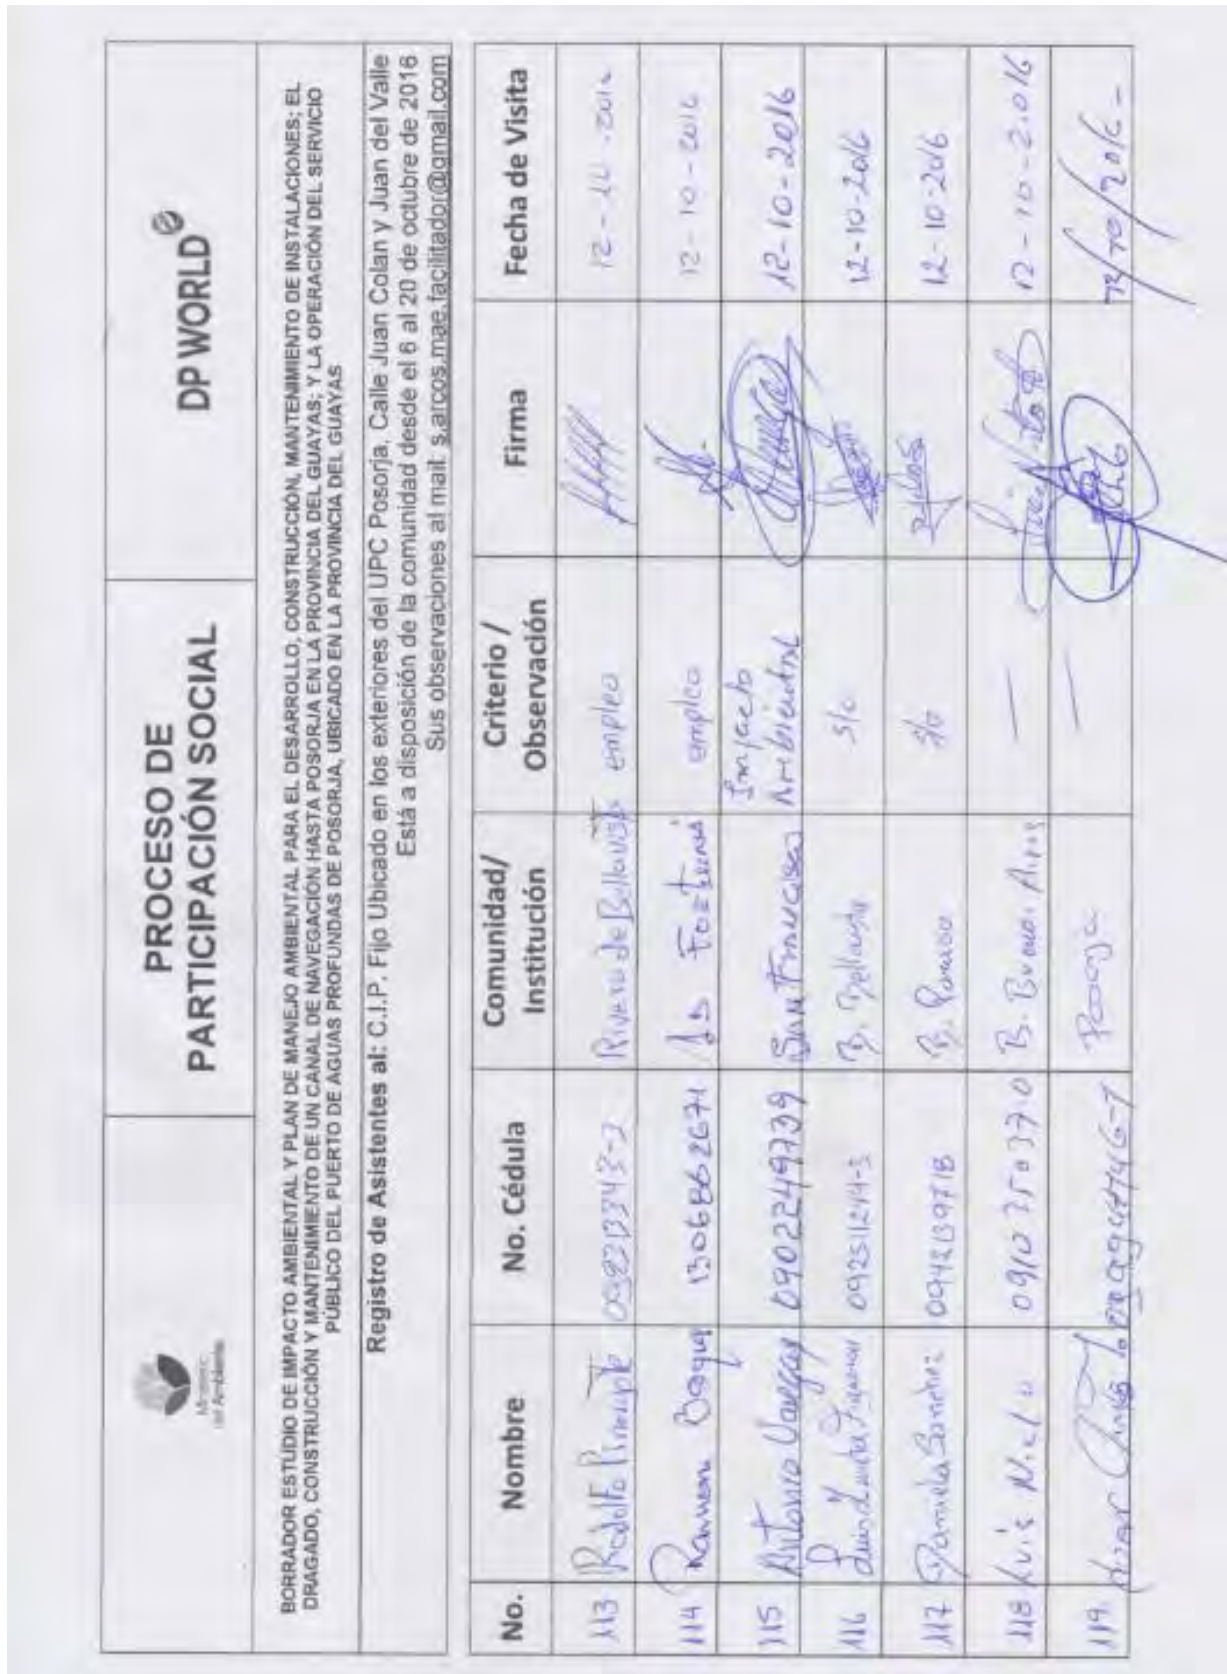 Ministerio
del Ambiente
PROCESO DE
PARTICIPACIÓN SOCIAL
DP WORLD
BORRADOR ESTUDIO DE IMPACTO AMBIENTAL Y PLAN DE MANEJO AMBIENTAL PARA EL DESARROLLO, CONSTRUCCIÓN, MANTENIMIENTO DE INSTALACIONES; EL
DRAGADO, CONSTRUCCIÓN Y MANTENIMIENTO DE UN CANAL DE NAVEGACIÓN HASTA POSORJA EN LA PROVINCIA DEL GUAYAS; Y LA OPERACIÓN DEL SERVICIO
PÚBLICO DEL PUERTO DE AGUAS PROFUNDAS DE POSORJA, UBICADO EN LA PROVINCIA DEL GUAYAS
Registro de Asistentes al: C.I.P. Fijo Ubicado en los exteriores del UPC Posorja, Calle Juan Colan y Juan del Valle
Está a disposición de la comunidad desde el 6 al 20 de octubre de 2016
Sus observaciones al mail: s.arcos.mae.facilitador@gmail.com
No. Nombre No. Cédula Comunidad/ Institución Criterio / Observación Firma Fecha de Visita
113 Rodolfo Rivera de Bellavista empleo
114 Ramon 1306862671 empleo 12-10-2016
115 Antonio Vargas 0902249739 San Francisco Impacto Ambiental 12-10-2016
116 Luis 092511214-3 B. Bellavista s/o 12-10-2016
117 Daniela Sanchez 0942139718 B. s/o 12-10-2016
118 Luis Nieto 0910350370 B. Buenos Aires — 12-10-2.016
119. Posorja — 12/10/2016-